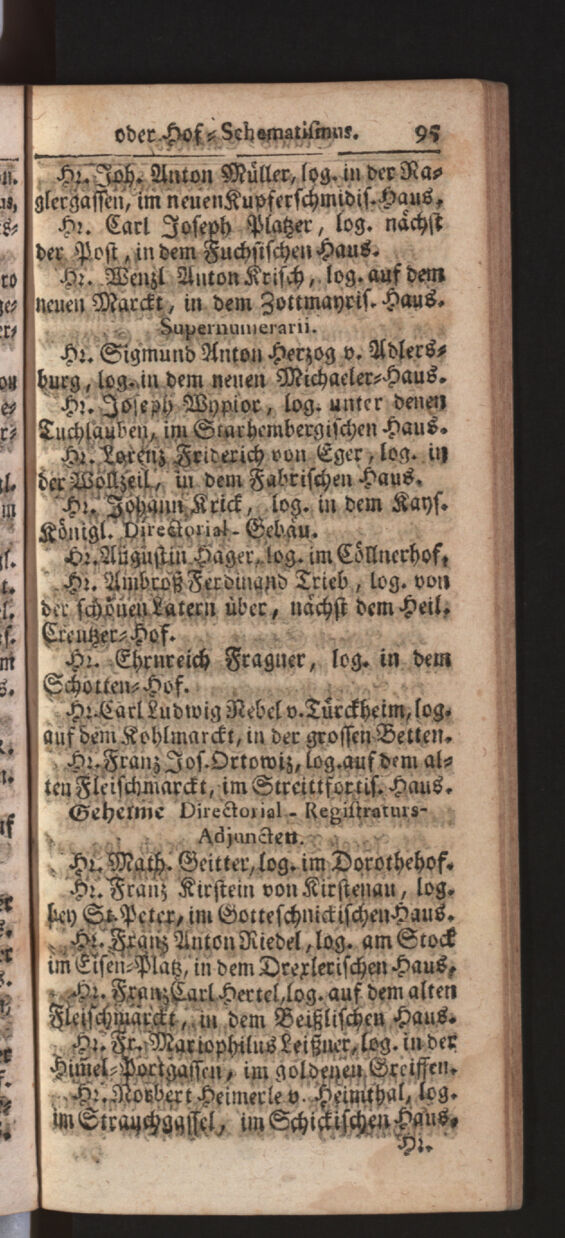 oder Hof-Schematismus. 95
Hr. Joh. Anton Müller, log. in der Na-
glergassen, im neuen Kupferschmidis. Haus.
Hr. Carl Joseph Platzer, log. nächst
der Post, in dem Fuchsischen Haus.
Hr. Wenzl Anton Krisch, log. auf dem
neuen Marckt, in dem Zottmayris. Haus.
Supernumerarii.
Hr. Sigmund Anton Herzog v. Adlers-
burg, log. in dem neuen Michaeler-Haus.
Hr. Joseph Wypior, log. unter denen
Tuchlauben, im Starhembergischen Haus.
Hr. Lorenz Friderich von Eger, log. in
der Wollzeil, in dem Fabrischen Haus.
Hr. Johann Krick, log. in dem Kays.
Königl. Directorial-Gebäu.
Hr. Augustin Hager, log. im Cöllnerhof.
Hr. Ambroß Ferdinand Trieb, log. von
der schönen Latern über, nächst dem Heil.
Creutzer-Hof.
Hr. Ehrnreich Fragner, log. in dem
Schotten-Hof.
Hr. Carl Ludwig Nebel v. Türckheim, log.
auf dem Kohlmarckt, in der grossen Betten.
Hr. Franz Jos. Ortowiz, log. auf dem al-
ten Fleischmarckt, im Streittfortis. Haus.
Geheime Directorial-Registraturs-
Adjuncten.
Hr. Math. Geitter, log. im Dorothehof.
Hr. Franz Kirstein von Kirstenau, log.
bey St. Peter, im Gotteschnickischen Haus.
Hr. Franz Anton Riedel, log. am Stock
im Eisen-Platz, in dem Drexlerischen Haus.
Hr. Franz Carl Hertel, log. auf dem alten
Fleischmarckt, in dem Beißlischen Haus.
Hr. Fr. Mariophilus Leißner, log. in der
Himel-Portgassen, im goldenen Greiffen.
Hr. Norbert Heimerle v. Heimthal, log.
im Strauchgassel, im Schickischen Haus.
Hr.